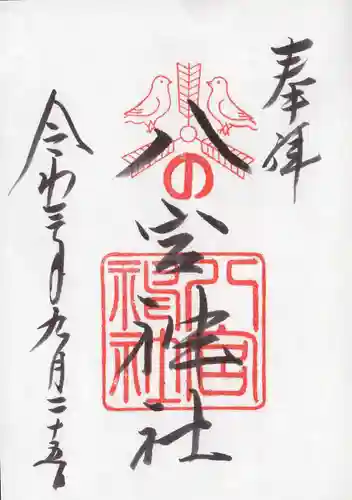 奉拝
八の宮神社
八宮神社
令和三年九月二十五日